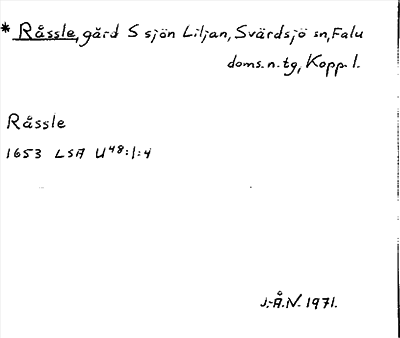 * Råssle, gård S sjön Liljan, Svärdsjö sn, Falu
doms. n. tg, Kopp. l.
Råssle
1653 LSA U48:1:4
J.-Å.N. 1971.